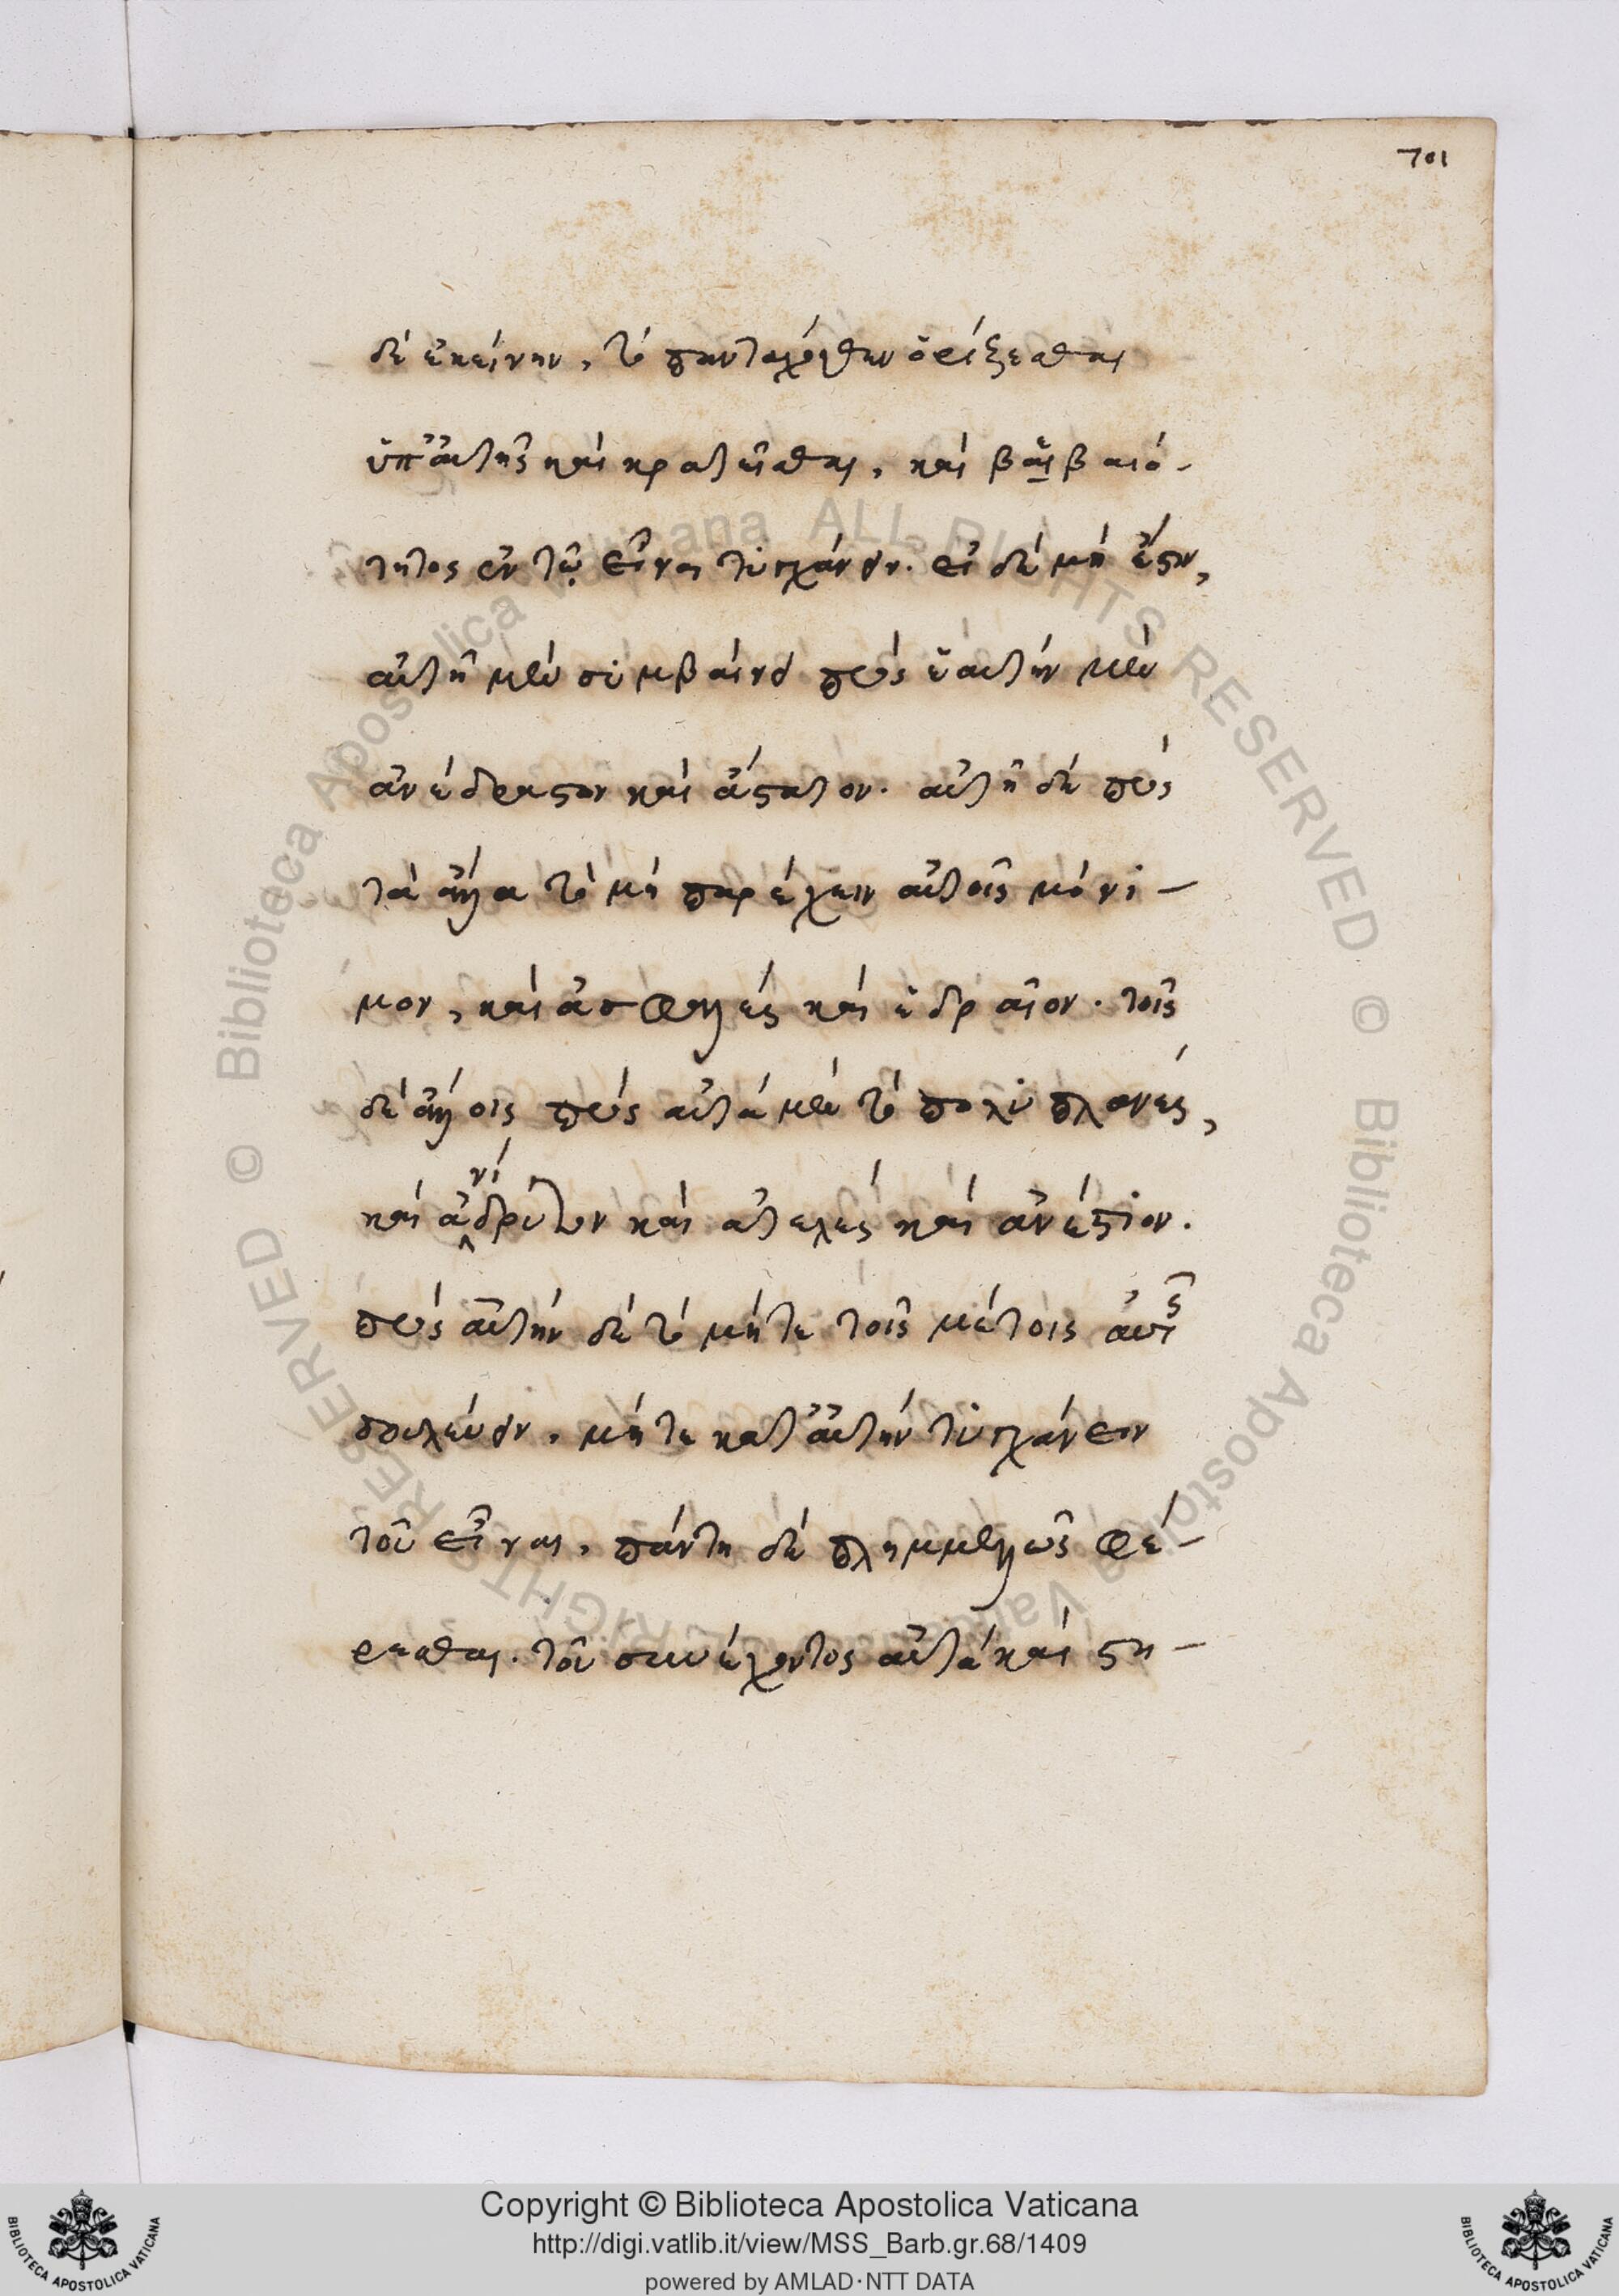 701
δὲ ἐκείνην, τὸ πανταχόθεν ὀρέξεσθαι
ὑπ' αὐτῆς καὶ κρατεῖσθαι, καὶ βαιβαιό-
τητος ἐν τῷ εἶναι τυγχάνειν. εἰ δὲ μὴ ἔστιν,
αὐτῇ μὲν συμβαίνει πρὸς ἑαυτὴν μὲν
ἀνέδραστον καὶ ἄστατον. αὐτῇ δὲ πρὸς
τὰ ἄλλα τὸ μὴ παρέχειν αὐτοῖς μόνι-
μον, καὶ ἀσφαλὲς καὶ ἑδραῖον. τοῖς
δὲ ἄλλοις πρὸς αὐτὰ μὲν τὸ πολυπλανές,
καὶ ἀνίδρυτον καὶ ἀτελὲς καὶ ἀνέστιον.
πρὸς αὐτὴν δὲ τὸ μήτε τοῖς μέτοις αὐτῆς
πολεύειν, μήτε κατ' αὐτὴν τυγχάνειν
τοῦ εἶναι, πάντη δὲ πλημμελῶς φέ-
ρεσθαι. τοῦ συνέχοντος αὐτὰ καὶ στη-
Copyright © Biblioteca Apostolica Vaticana
http://digi.vatlib.it/view/MSS_Barb.gr.68/1409
powered by AMLAD·NTT DATA
BIBLIOTECA APOSTOLICA VATICANA
BIBLIOTECA APOSTOLICA VATICANA
© Biblioteca Apostolica Vaticana ALL RIGHTS RESERVED © Biblioteca Apostolica Vaticana ALL RIGHTS RESERVED